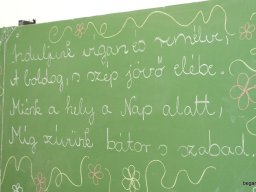 Induljunk vígan és remélve,
A boldog, s szép jövő elébe.
Miénk a hely a Nap alatt,
Míg szívünk bátor s szabad.